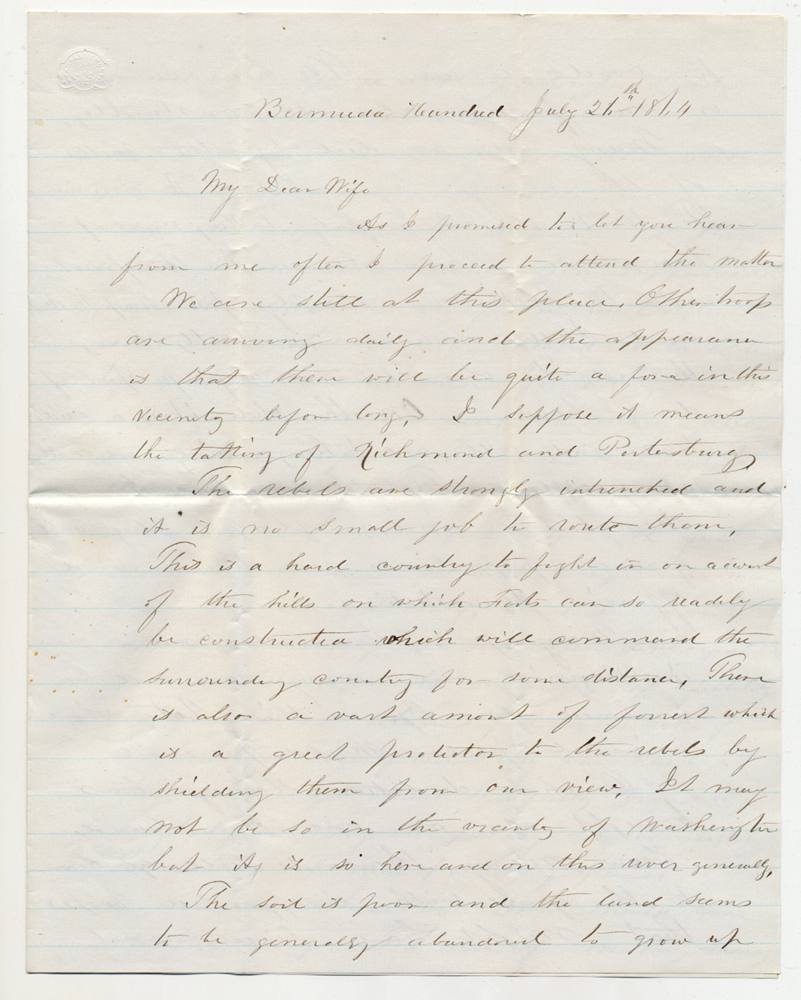 Bermuda Hundred July 26th 1864
My Dear Wife
As I promised to let you hear
from me often I proceed to attend the matter
We are still at this place. Other troops
are arriving daily and the appearance
is that there will be quite a force in this
vicinety before long, I suppose it means
the taking of Richmond and Petersburg
The rebels are strongly intrenched and
it is no small job to route them,
This is a hard country to fight in on account
of the hills on which Forts can so readily
be constructed which will command the
surrounding country for some distance, There
is also a vast amount of forrest which
is a great protector to the rebels by
shielding them from our view, It may
not be so in the vicinity of Washington
but it is so here and on this river generally,
The soil is poor and the land seems
to be generally abandoned to grow up